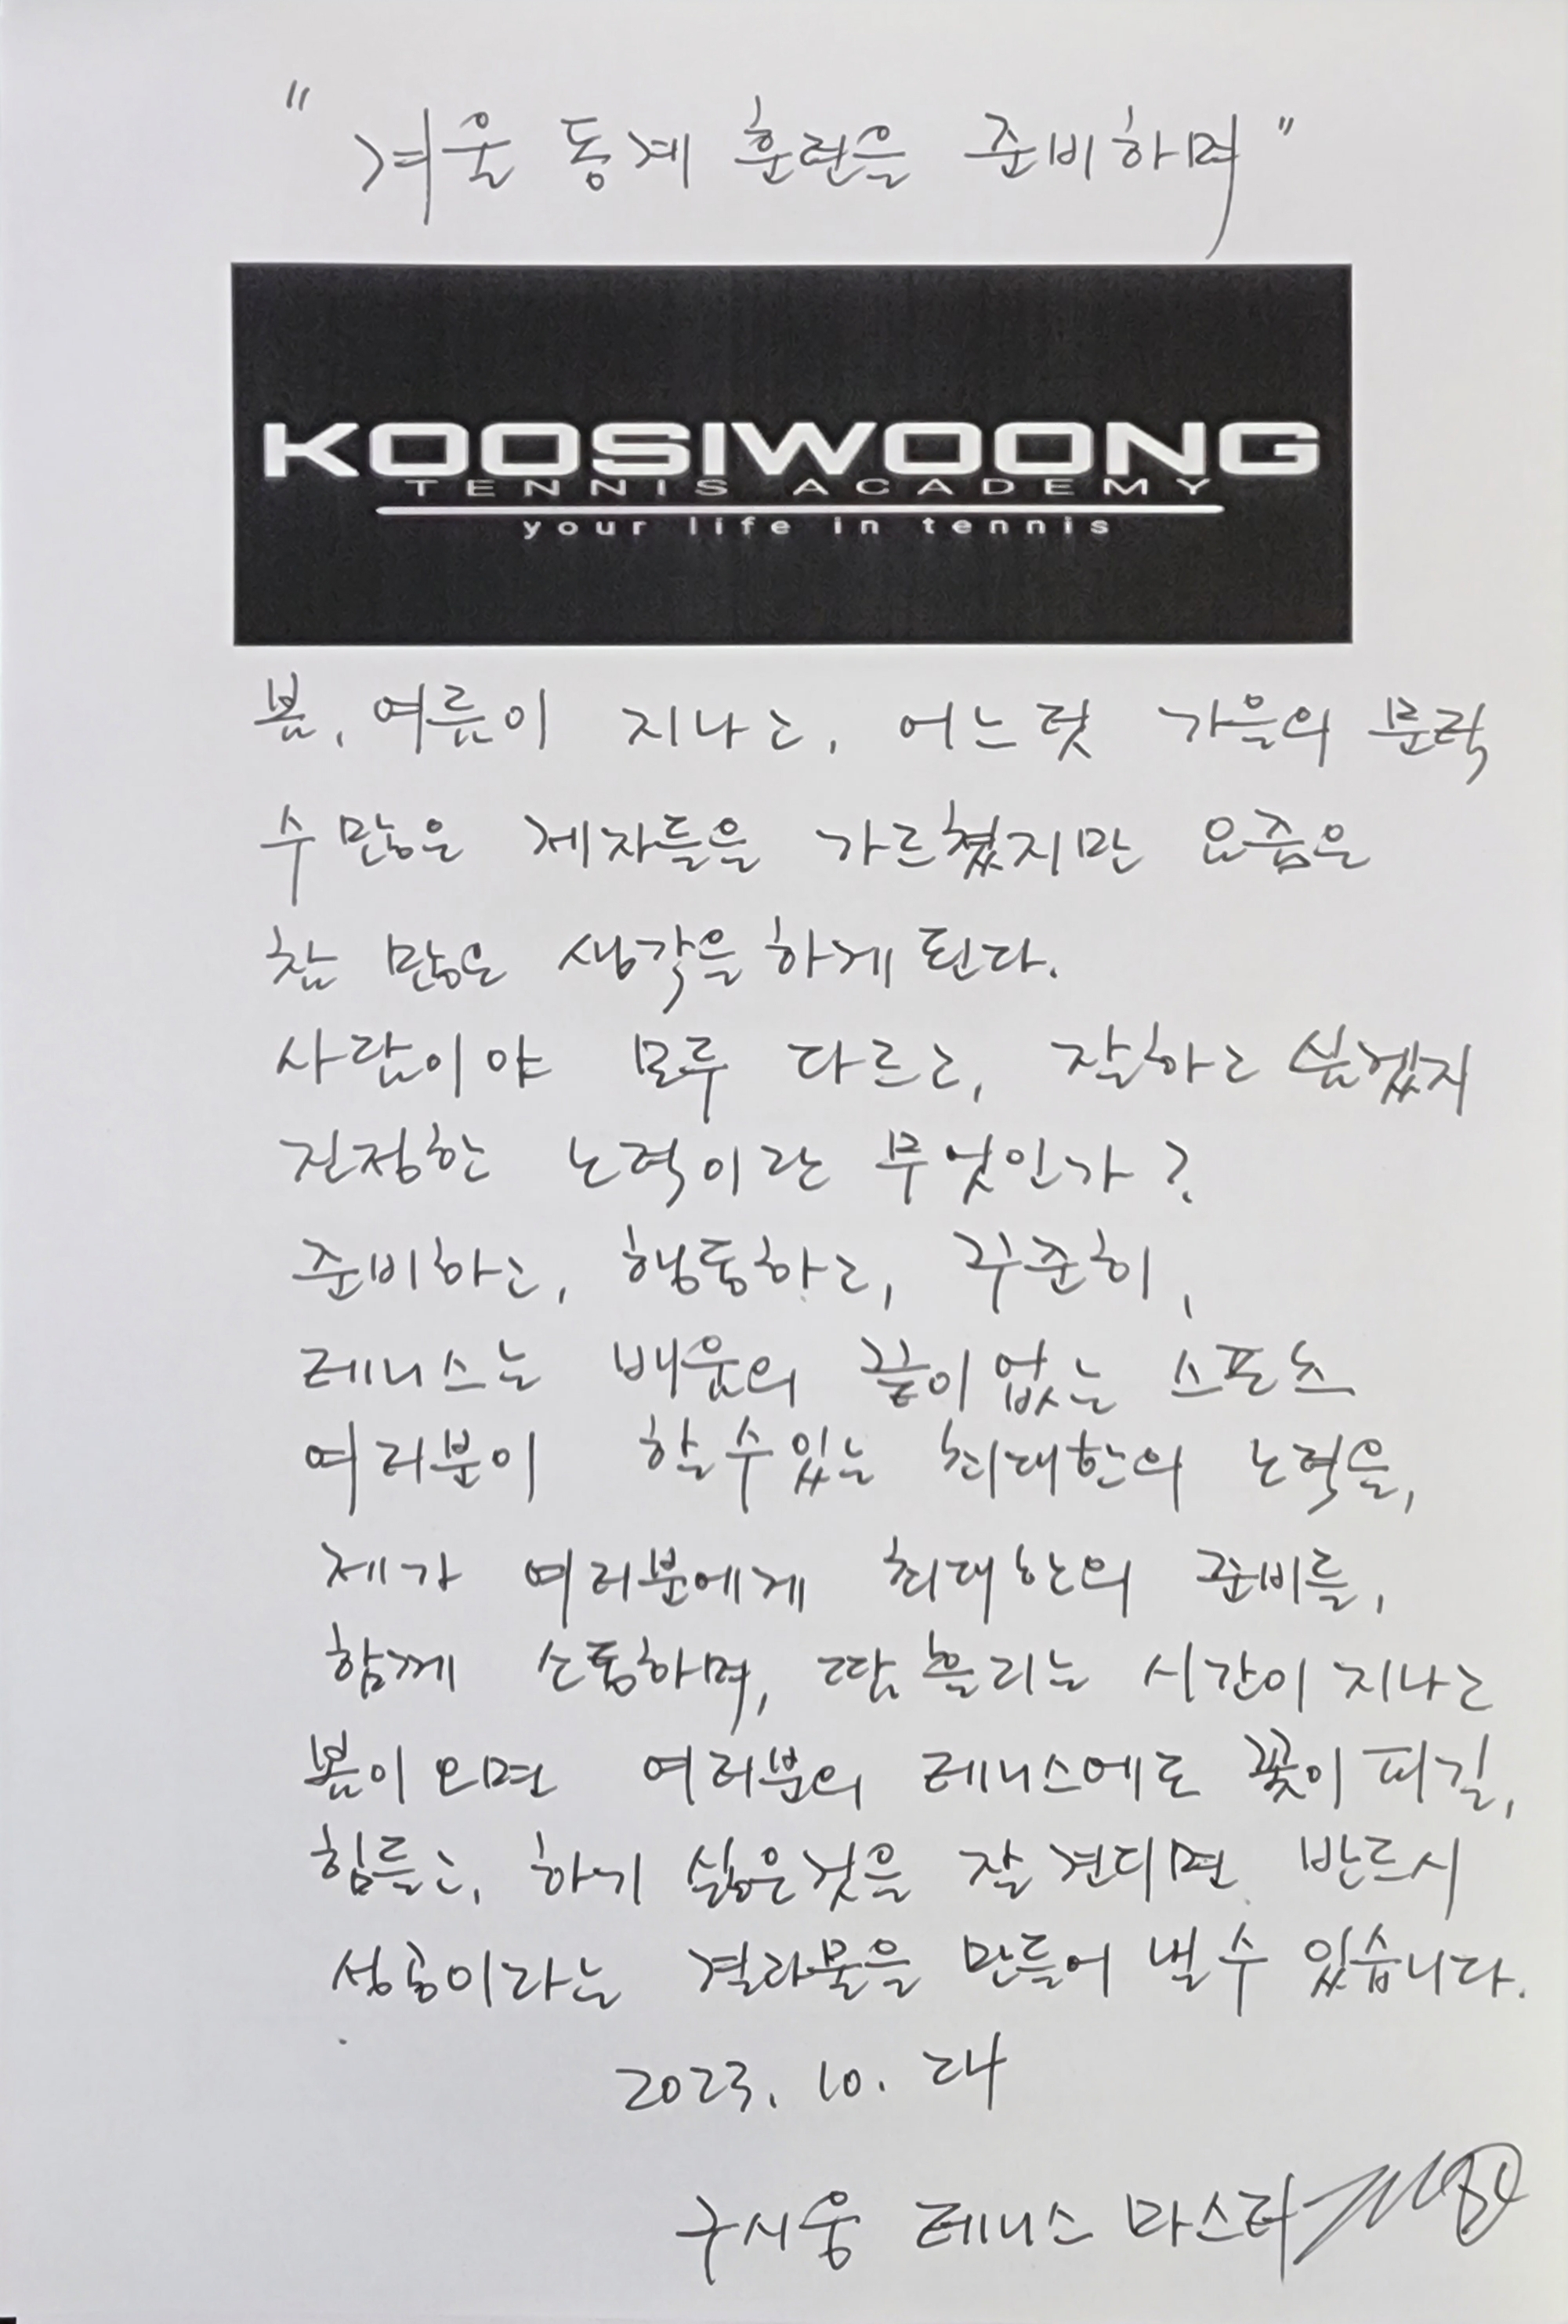 "겨울 동계 훈련을 준비하며"
KOOSIWOONG
TENNIS ACADEMY
your life in tennis
봄, 여름이 지나고, 어느덧 가을의 문턱
수 많은 제자들을 가르쳤지만 요즘은
참 많은 생각을 하게 된다.
사람이야 모두 다르고, 잘하고 싶겠지
진정한 노력이란 무엇인가?
준비하고, 행동하고, 꾸준히,
테니스는 배움의 끝이 없는 스포츠
여러분이 할 수 있는 최대한의 노력을,
제가 여러분에게 최대한의 준비를,
함께 소통하며, 땀 흘리는 시간이 지나고
봄이 오면 여러분의 테니스에도 꽃이 피길,
힘들고, 하기 싫은것을 잘 견디면 반드시
성공이라는 결과물을 만들어 낼 수 있습니다.
2023. 10. 24
구시웅 테니스 마스터